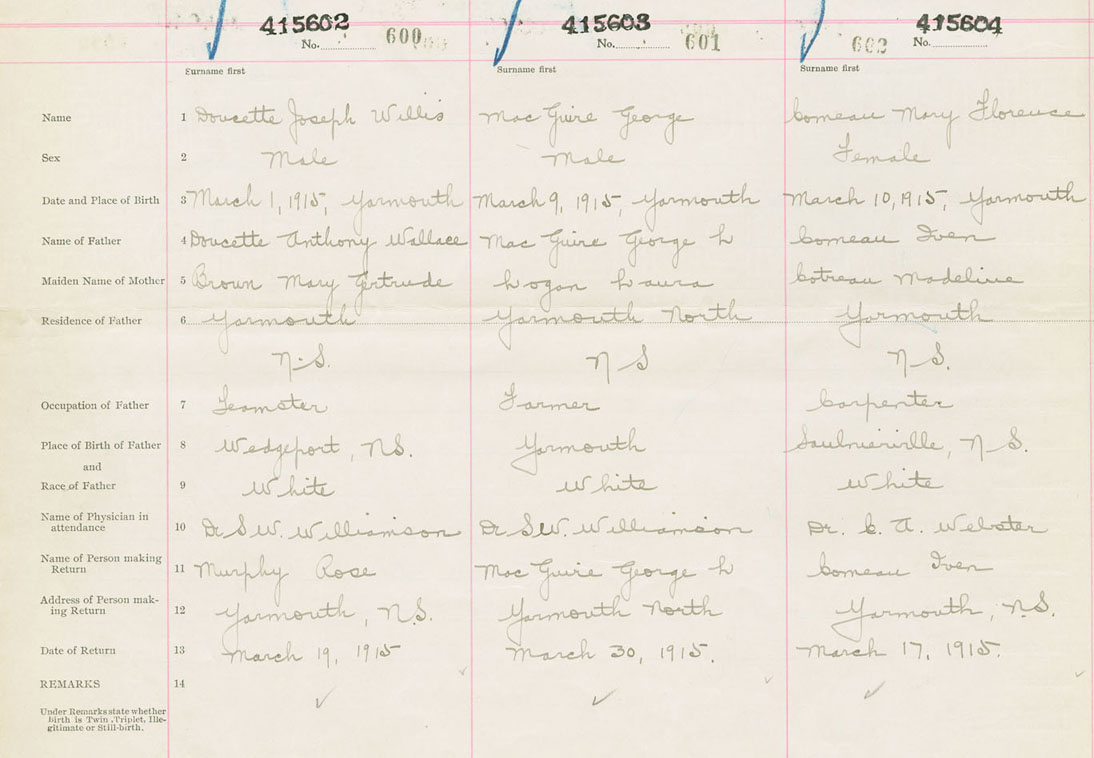 415602 415603 415604
No. 600 No. 601 602 No.
Surname first Surname first Surname first
Name 1 Doucette Joseph Willis Mac Guire George Comeau Mary Florence
Sex 2 Male Male Female
Date and Place of Birth 3 March 1, 1915, Yarmouth March 9, 1915, Yarmouth March 10, 1915, Yarmouth
Name of Father 4 Doucette Anthony Wallace Mac Guire George L Comeau Iven
Maiden Name of Mother 5 Brown Mary Gertrude Logan Laura Cotreau Madeline
Residence of Father 6 Yarmouth Yarmouth North Yarmouth
N.S. N S N.S.
Occupation of Father 7 Teamster Farmer Carpenter
Place of Birth of Father 8 Wedgeport, N.S. Yarmouth Saulnierville, N.S.
and
Race of Father 9 White White White
Name of Physician in
attendance 10 Dr S.W. Williamson Dr S.W. Williamson Dr. C. A. Webster
Name of Person making
Return 11 Murphy Rose Mac Guire George L Comeau Iven
Address of Person mak-
ing Return 12 Yarmouth, N.S. Yarmouth North Yarmouth, N.S.
Date of Return 13 March 19, 1915 March 30, 1915. March 17, 1915.
REMARKS 14
Under Remarks state whether
birth is Twin, Triplet, Ille-
gitimate or Still-birth.